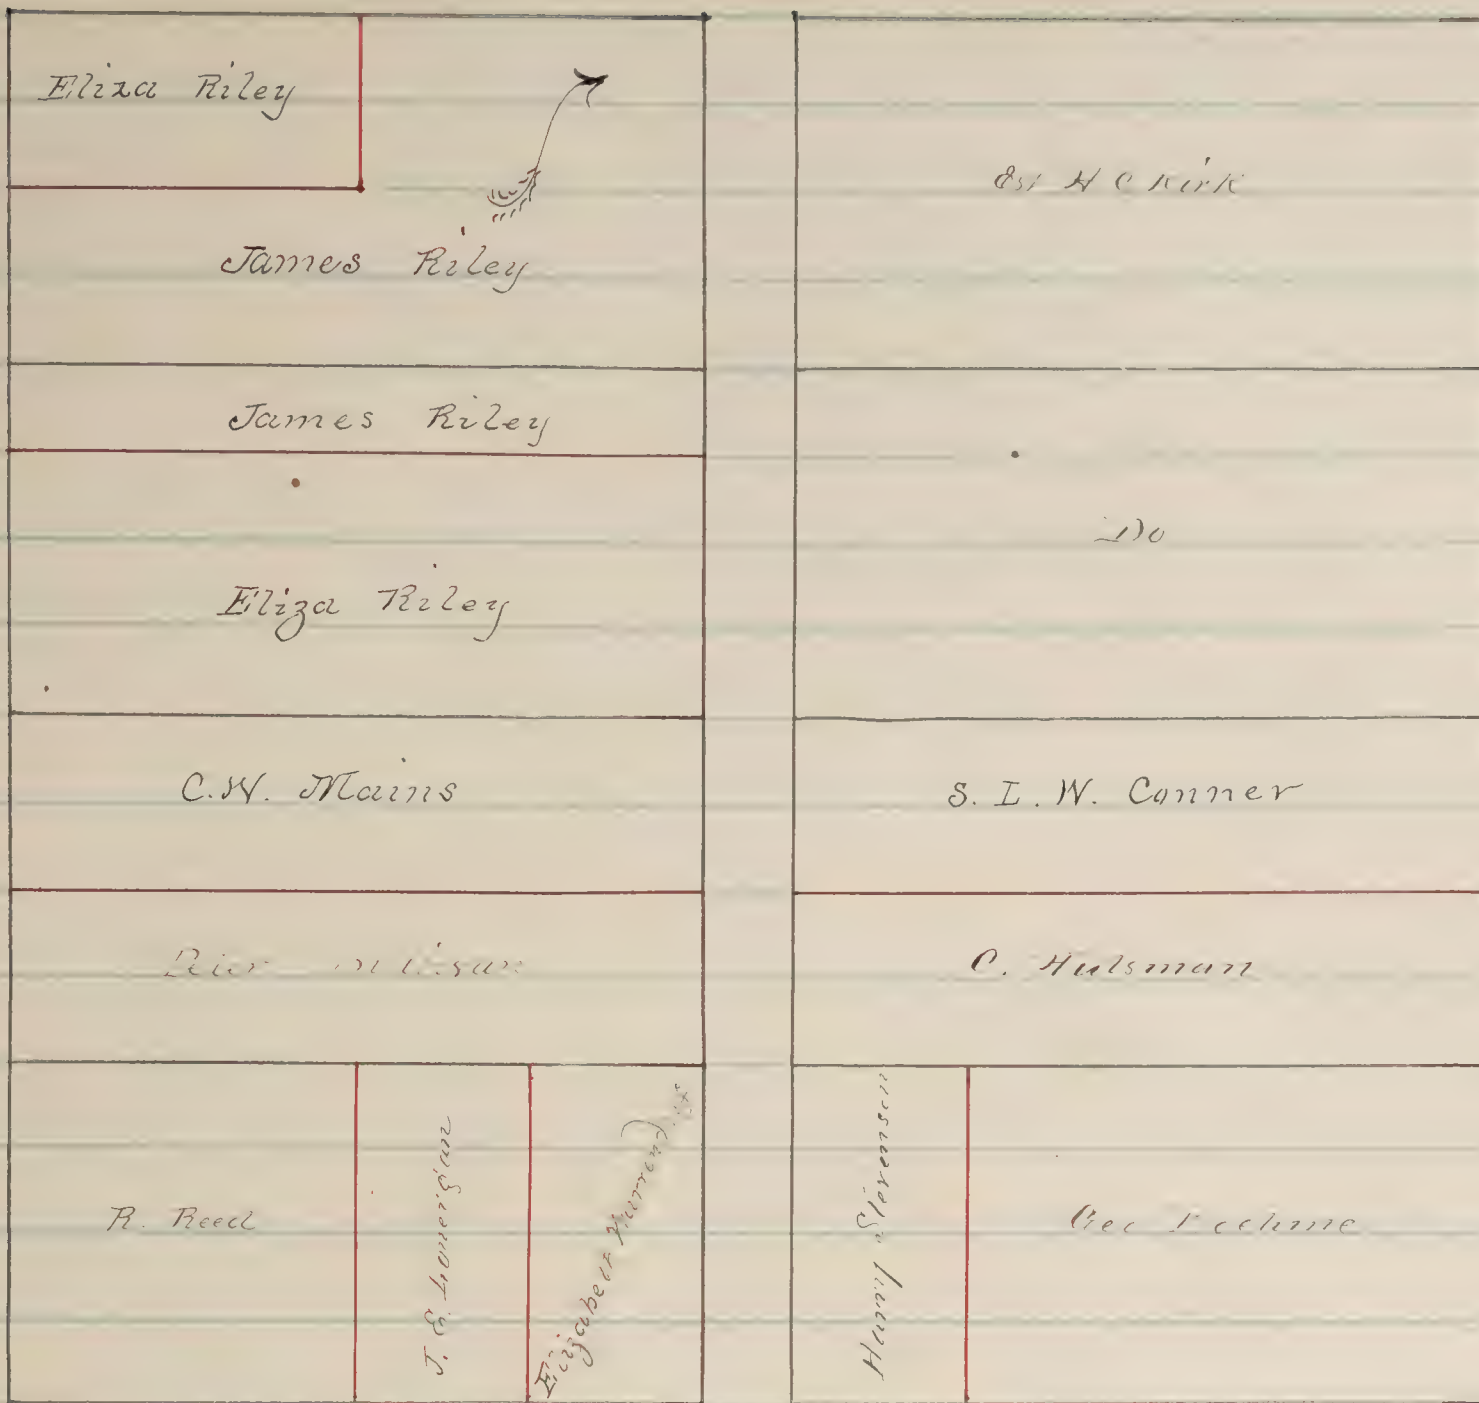 Eliza Riley
James Riley
James Riley
Eliza Riley
C.W. Mains
R. Reed
J. E. Lonergan
Elizabeth
Est H C Kirk
Do
S. I. W. Conner
C. Hulsman
Harry Stevenson
Geo